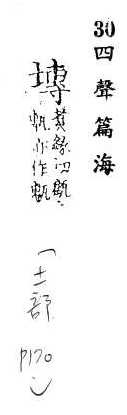 30 四聲篇海
塼
緣切
亦作
(土部 p170)